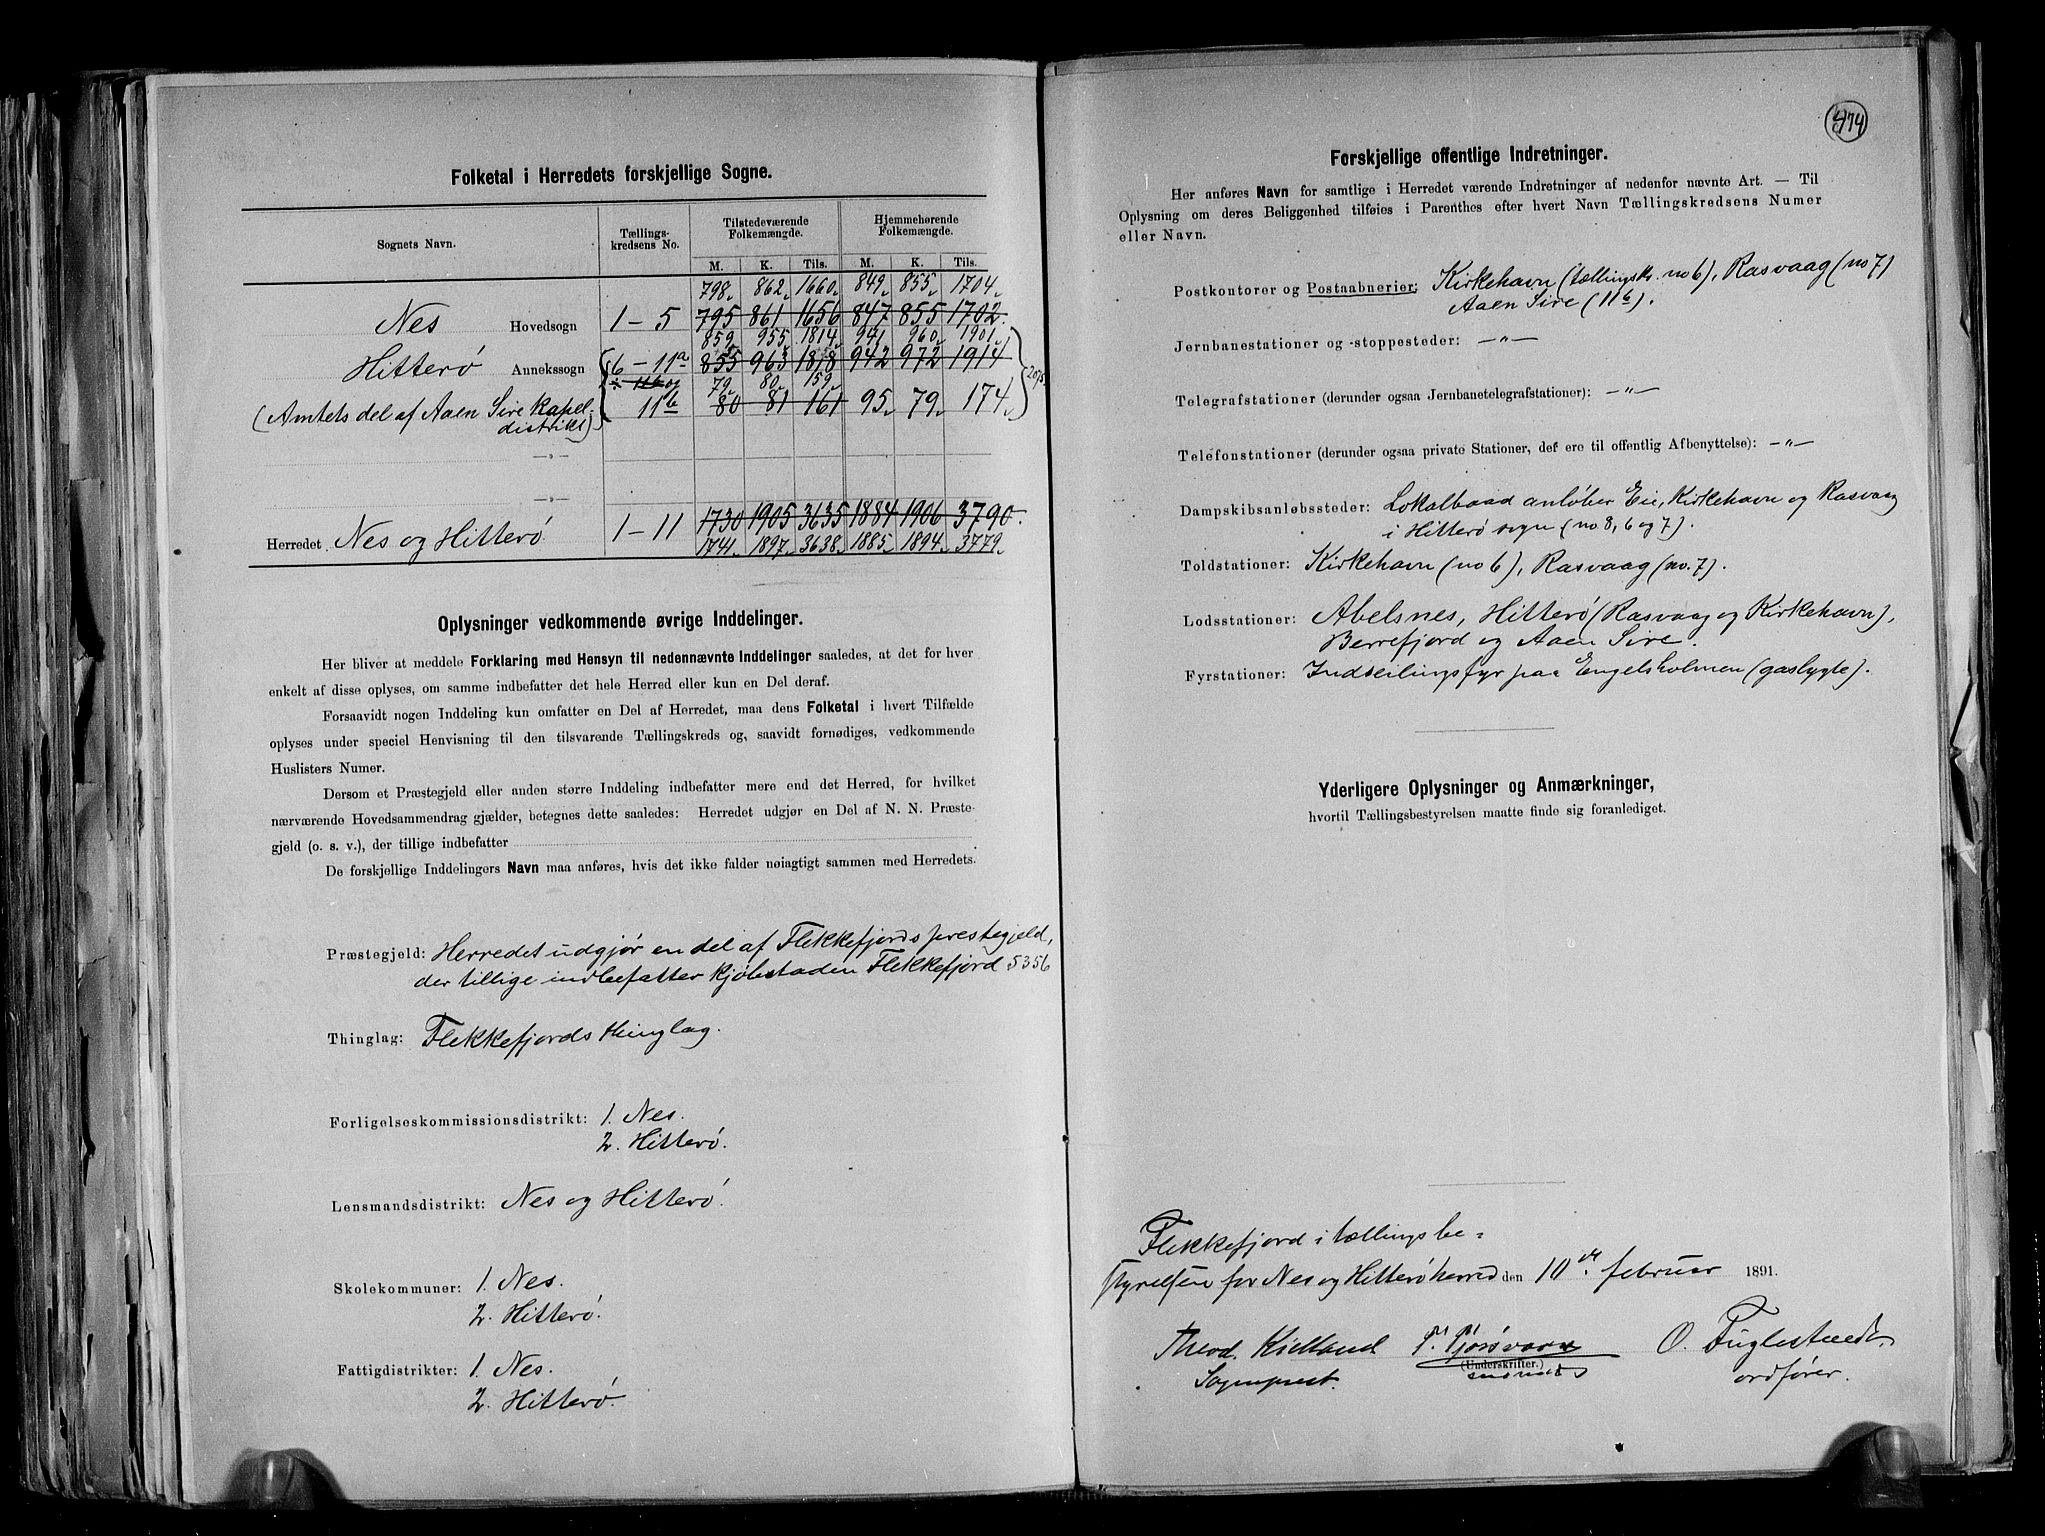 Folketal i Herredets forskjellige Sogne.
Sognets Navn.
Tællings-
kredsens No.
Tilstedeværende
Folkemængde.
Hjemmehørende
Folkemængde.
M. K. Tils. M. K. Tils.
798. 862. 1660. 849. 855. 1704.
Nes Hovedsogn 1–5 795 861 1656 847 855 1702.
859. 955. 1814. 941. 960. 1901.
Hitterø Annekssogn 6–11a 855 963 1818 942 972 1914
11b og 79. 80. 159. 2075.
(Amtets del af Aaen Sire kapel- 11b 80 81 161 95. 79. 174.
distrikt)
—»—
—»—
1730 1905 3635 1884 1906 3790.
Herredet Nes og Hitterø 1–11
1741. 1897. 3638. 1885. 1894. 3779.
Oplysninger vedkommende øvrige Inddelinger.
Her bliver at meddele Forklaring med Hensyn til nedennævnte Inddelinger saaledes, at det for hver
enkelt af disse oplyses, om samme indbefatter det hele Herred eller kun en Del deraf.
Forsaavidt nogen Inddeling kun omfatter en Del af Herredet, maa dens Folketal i hvert Tilfælde
oplyses under speciel Henvisning til den tilsvarende Tællingskreds og, saavidt fornødiges, vedkommende
Huslisters Numer.
Dersom et Præstegjeld eller anden større Inddeling indbefatter mere end det Herred, for hvilket
nærværende Hovedsammendrag gjælder, betegnes dette saaledes: Herredet udgjør en Del af N. N. Præste-
gjeld (o. s. v.), der tillige indbefatter
De forskjellige Inddelingers Navn maa anføres, hvis det ikke falder nøiagtigt sammen med Herredets.
Præstegjeld: Herredet udgjør en del af Flekkefjords prestegjeld,
der tillige indbefatter kjøbstaden Flekkefjord 5356
Thinglag: Flekkefjords thinglag.
Forligelseskommissionsdistrikt: 1. Nes.
2. Hitterø.
Lensmandsdistrikt: Nes og Hitterø.
Skolekommuner: 1. Nes.
2. Hitterø.
Fattigdistrikter: 1. Nes.
2. Hitterø.
474
Forskjellige offentlige Indretninger.
Her anføres Navn for samtlige i Herredet værende Indretninger af nedenfor nævnte Art. — Til
Oplysning om deres Beliggenhed tilføies i Parenthes efter hvert Navn Tællingskredsens Numer
eller Navn.
Postkontorer og Postaabnerier: Kirkehavn (tællingskr. no 6), Rasvaag (no 7)
Aaen Sire (11b).
Jernbanestationer og -stoppesteder: —"—
Telegrafstationer (derunder ogsaa Jernbanetelegrafstationer): —"—
Telefonstationer (derunder ogsaa private Stationer, def ere til offentlig Afbenyttelse): —"—
Dampskibsanløbssteder: Lokalbaad anløber Eie, Kirkehavn og Rasvaag
i Hitterø sogn (no 8, 6 og 7).
Toldstationer: Kirkehavn (no 6), Rasvaag (no. 7).
Lodsstationer: Abelsnes, Hitterø (Rasvaag og Kirkehavn),
Berrefjord og Aaen Sire.
Fyrstationer: Indseilingsfyr paa Engelsholmen (gaslygte).
Yderligere Oplysninger og Anmærkninger,
hvortil Tællingsbestyrelsen maatte finde sig foranlediget.
Flekkefjord i tællingsbe-
styrelsen for Nes og Hitterø herred den 10de februar 1891.
Theod. Kielland O. Fuglestvedt
(Underskrifter.)
Sogneprest. ordfører.